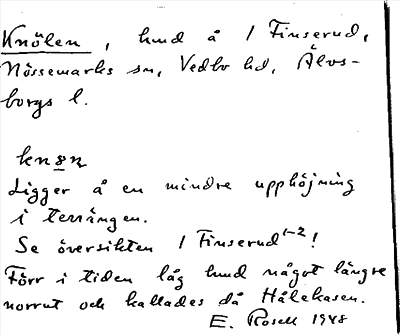 Knölen, hmd å 1 Finserud,
Nössemarks sn, Vedbo hd, Älvs-
borgs l.
knøn
Ligger å en mindre upphöjning
i terrängen.
Se översikten 1 Finserud 1-2!
Förr i tiden låg hmd något längre
norrut och kallades då Hålekasen.
E. Rosell 1948